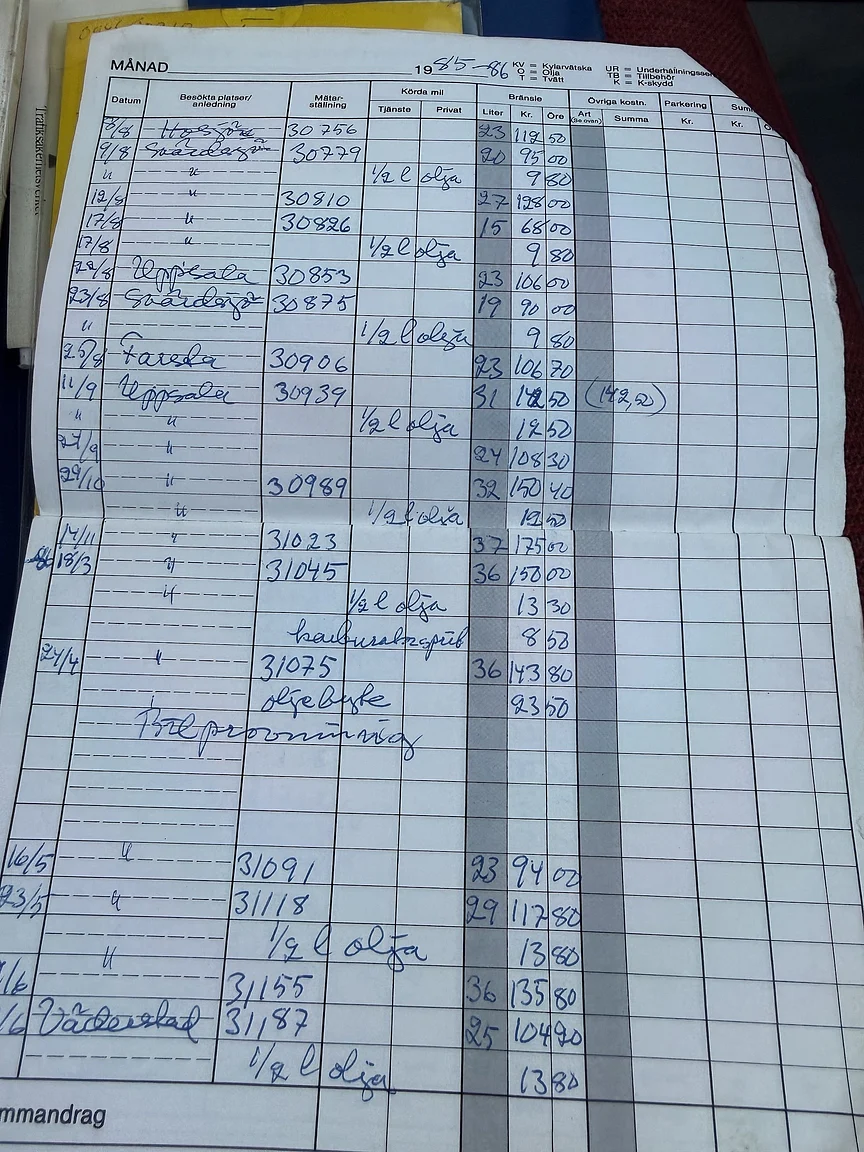 MÅNAD 1985-86 KV = Kylarvätska UR = Underhållningsser
O = Olja TB = Tillbehör
T = Tvätt K = K-skydd
Datum Besökta platser/anledning Mätarställning Körda mil Bränsle Övriga kostn. Parkering Sum
Tjänste Privat Liter Kr. Öre Art (Se ovan) Summa Kr. Kr.
8/8 30756 23 112 50
9/8 Svärdsjö 30779 20 95 00
" " 1/2 l olja 9 80
12/8 " 30810 27 128 00
17/8 " 30826 15 68 00
17/8 " 1/2 l olja 9 80
22/8 Uppsala 30853 23 106 00
23/8 Svärdsjö 30875 19 90 00
" 1/2 l olja 9 80
25/8 Farsta 30906 23 106 70
11/9 Uppsala 30939 31 142 50 (142,50)
" " 1/2 l olja 12 50
27/9 " 24 108 30
29/10 " 30989 32 150 40
" 1/2 l olja 12 50
14/11 " 31023 37 175 00
86 18/3 " 31045 36 158 00
" 1/2 l olja 13 30
8 50
24/4 " 31075 36 143 80
oljebyte 23 50
Bilprovning
16/5 " 31091 23 94 00
23/5 " 31118 29 117 80
1/2 l olja 13 80
/6 " 31155 36 135 80
/6 Väderstad 31187 25 104 90
1/2 l olja 13 80
mmandrag
Trafiksäkerhetsverket